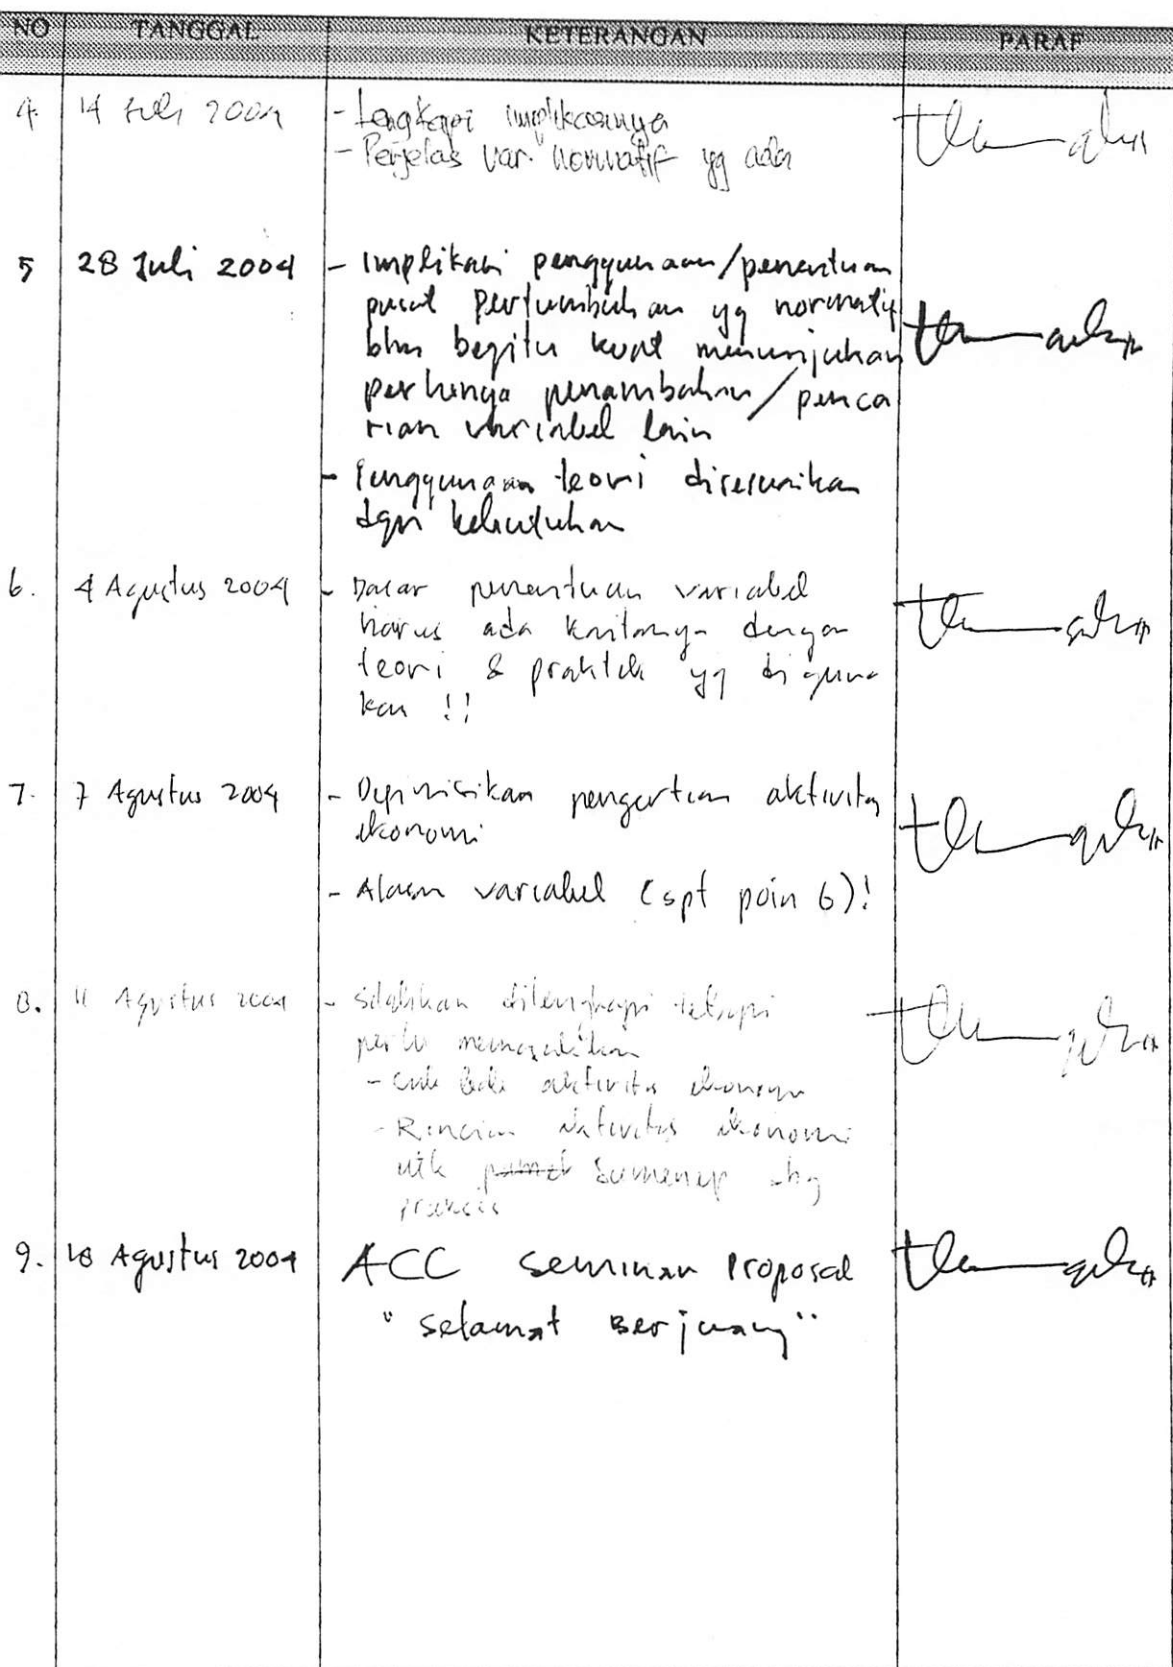 NO TANGGAL KETERANGAN PARAF
4. 14 Juli 2004 - Lengkapi implikasinya
- Perjelas var. normatif yg ada
5 28 Juli 2004 - Implikasi penggunaan/penentuan
pusat pertumbuhan yg normatif
blm begitu kuat menunjukan
perlunya penambahan/penca
rian variabel lain
- Penggunaan teori disesuaikan
dgn kebutuhan
6. 4 Agustus 2004 - Dasar penentuan variabel
harus ada kaitannya dengan
teori & praktek yg diguna
kan !!
7. 7 Agustus 2004 - Depinisikan pengertian aktivitas
ekonomi
- Alasan variabel (spt poin 6)!
8. 11 Agustus 2004 - Silahkan dilengkapi tetapi
perlu
- aktivitas ekonomi
- Rincian aktivitas ekonomi
utk Sumenep
praksis
9. 18 Agustus 2004 ACC Seminar Proposal
"Selamat Berjuang"